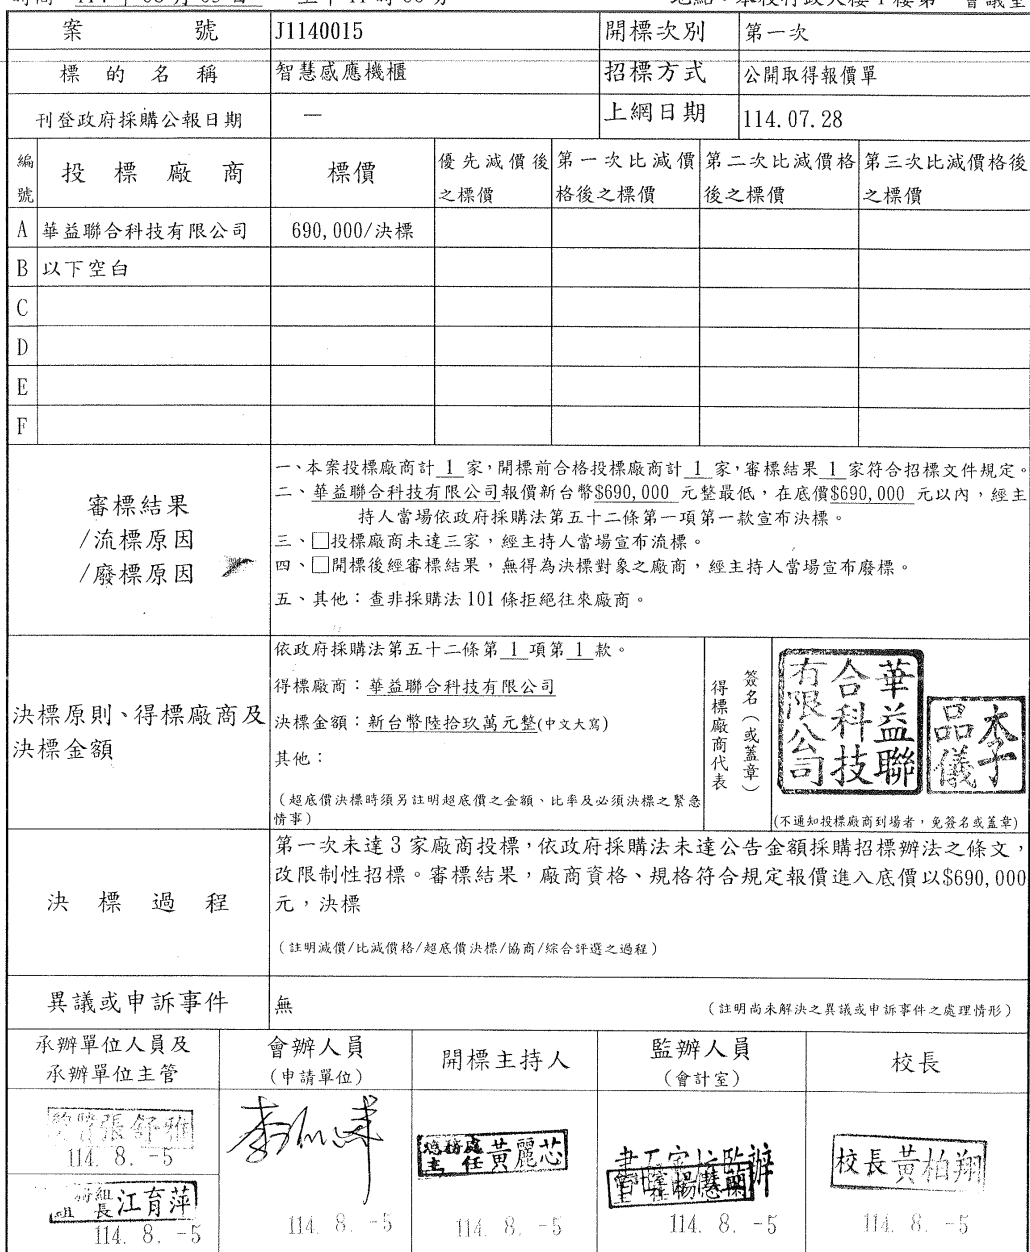 案號 J1140015 開標次別 第一次
標的名稱 智慧感應機櫃 招標方式 公開取得報價單
刊登政府採購公報日期 — 上網日期 114.07.28
編號 投標廠商 標價 優先減價後之標價 第一次比減價格後之標價 第二次比減價格後之標價 第三次比減價格後之標價
A 華益聯合科技有限公司 690,000/決標
B 以下空白
C
D
E
F
審標結果
/流標原因
/廢標原因
一、本案投標廠商計 1 家，開標前合格投標廠商計 1 家，審標結果 1 家符合招標文件規定。
二、華益聯合科技有限公司報價新台幣$690,000 元整最低，在底價$690,000 元以內，經主
持人當場依政府採購法第五十二條第一項第一款宣布決標。
三、□投標廠商未達三家，經主持人當場宣布流標。
四、□開標後經審標結果，無得為決標對象之廠商，經主持人當場宣布廢標。
五、其他：查非採購法 101 條拒絕往來廠商。
決標原則、得標廠商及
決標金額
依政府採購法第五十二條第 1 項第 1 款。
得標廠商：華益聯合科技有限公司
決標金額：新台幣陸拾玖萬元整(中文大寫)
其他：
（超底價決標時須另註明超底價之金額、比率及必須決標之緊急
情事）
得標廠商代表
簽名（或蓋章）
華益聯
合科技
有限公司
李
品儀
(不通知投標廠商到場者，免簽名或蓋章)
決標過程
第一次未達 3 家廠商投標，依政府採購法未達公告金額採購招標辦法之條文，
改限制性招標。審標結果，廠商資格、規格符合規定報價進入底價以$690,000
元，決標
（註明減價/比減價格/超底價決標/協商/綜合評選之過程）
異議或申訴事件 無 （註明尚未解決之異議或申訴事件之處理情形）
承辦單位人員及
承辦單位主管
會辦人員
（申請單位）
開標主持人
監辦人員
（會計室）
校長
張舒雅
114. 8. -5
組長江育萍
114. 8. -5
114. 8. -5
總務處
主任 黃麗芯
114. 8. -5
114. 8. -5
校長黃柏翔
114. 8. -5